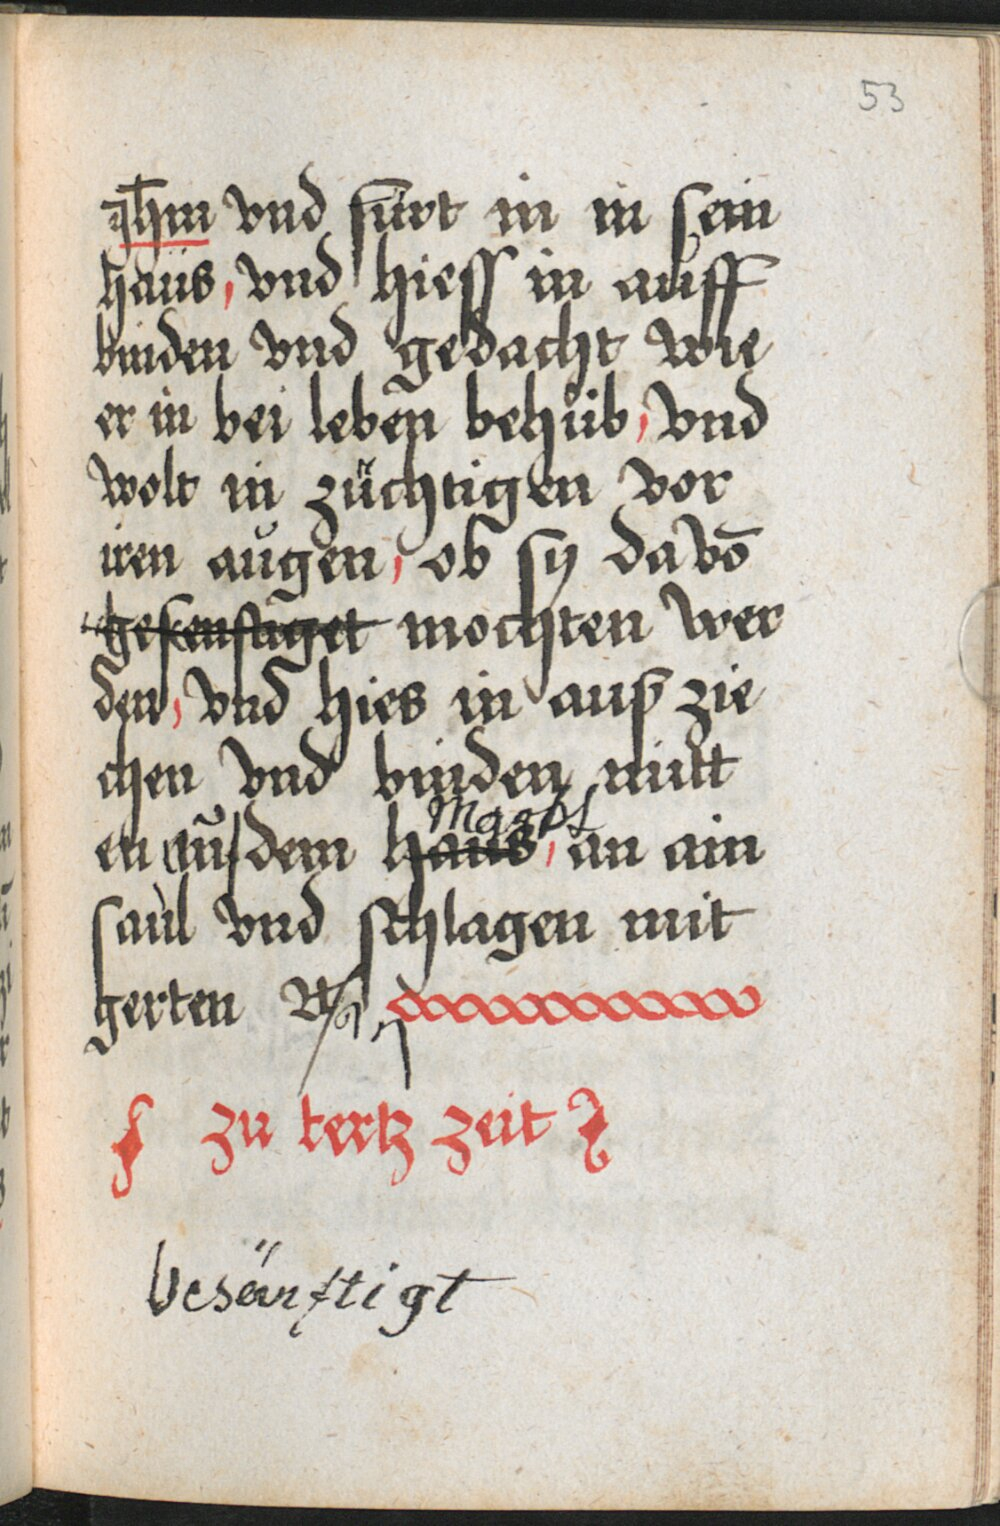 53
Jhm vnd fürt in in sein
haus, vnd hiess in auff
binden vnd gedacht wie
er in bei leben behüb, vnd
wolt in züchtigen vor
iren augen, ob sy da võ
gesenftiget mochten wer
den, vnd hies in auß zie
chen vnd binden mitt
en auf dem haus, an ain
saul vnd schlagen mit
gerten
zu tertz zeit
besänftigt